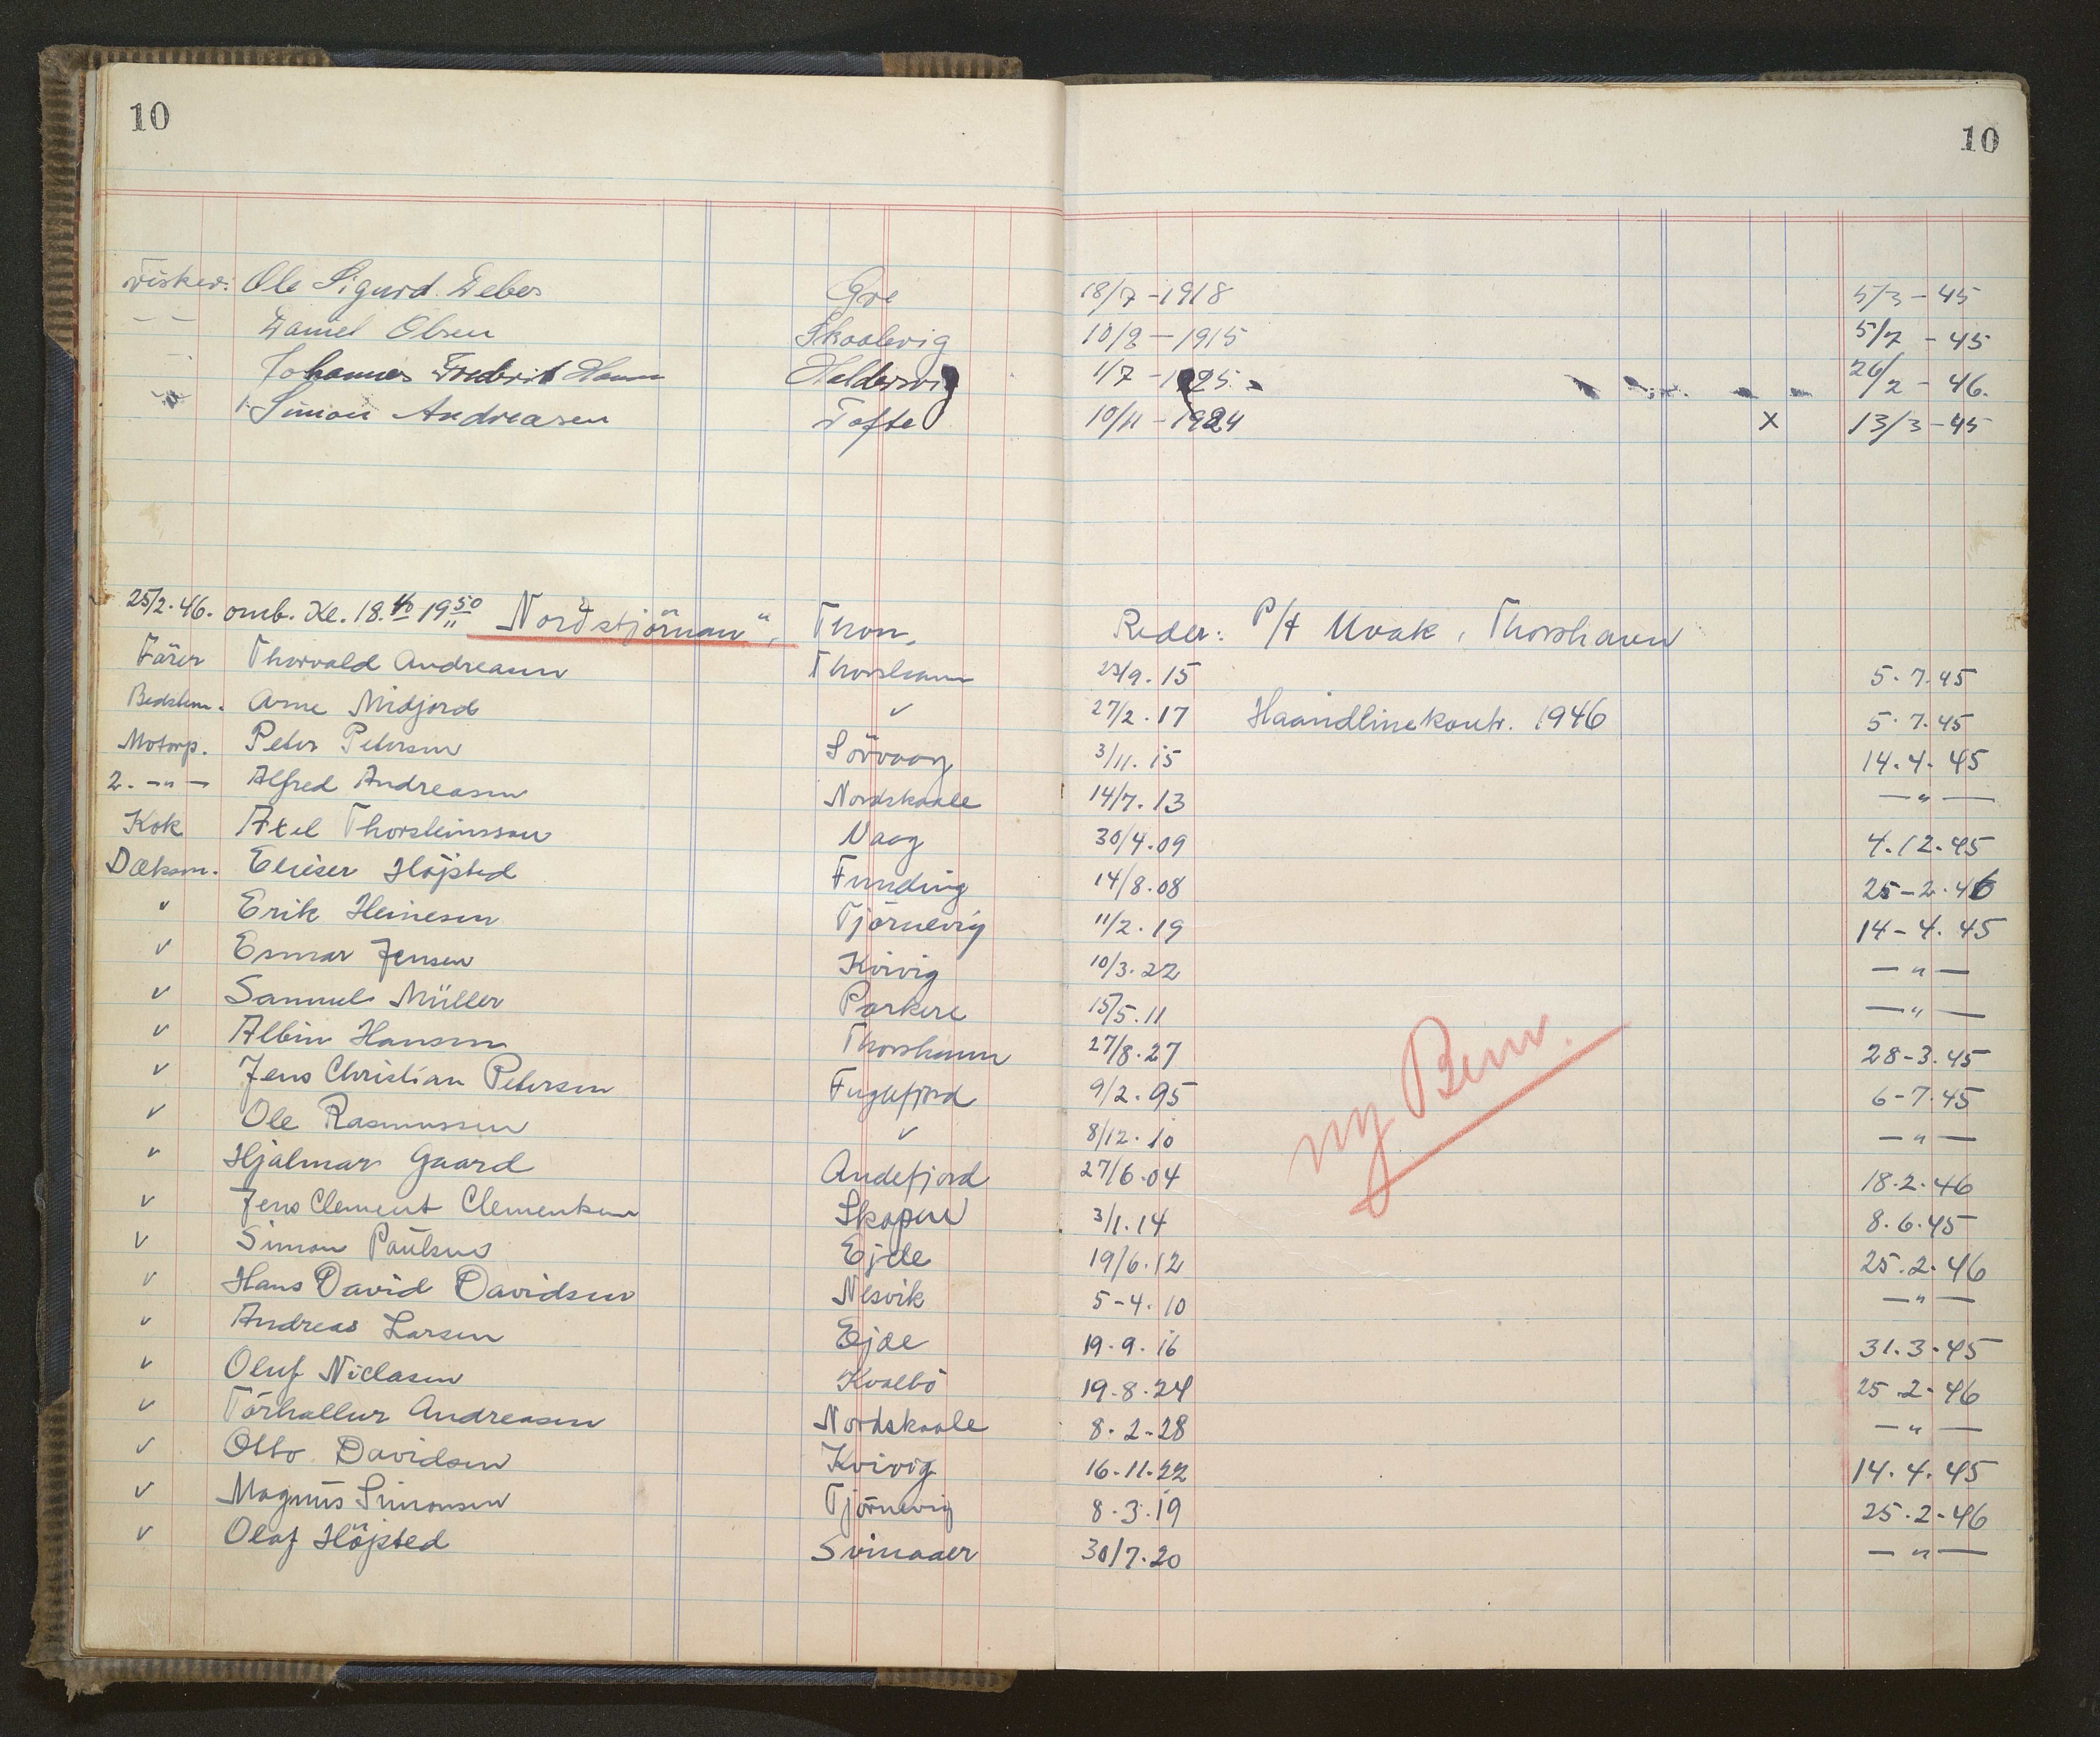 10 10
Fisker: Ole Sigurd Debes Gre 18/7 - 1918 5/3 - 45
— — Daniel Olsen Skaalevig 10/8 - 1915 5/7 - 45
— Johannes Frederik Hansen Haldersvig 1/7 - 1925 26/2 - 46.
— " — Simon Andreasen Tofte 10/11 - 1924 x 13/3 - 45
25/2.46. omb. Kl. 18.40 19.50 "Nordstjörnan", Thvn, Reder: P/f Uvak, Thorshavn
Förer Thorvald Andreasen Thorshavn 23/9.15 5.7.45
Bedstem. Arne Midjord " 27/2.17 Haandlinekontr. 1946 5.7.45
Motorp. Peter Petersen Sörvaag 3/11.15 14.4.45
2. — " — Alfred Andreasen Nordskaale 14/7.13 — " —
Kok Axel Thorsteinsson Vaag 30/4.09 4.12.45
Dæksm. Elieser Höjsted Funding 14/8.08 25-2.46
" Erik Heinesen Tjörnevig 11/2.19 14-4.45
" Esmar Jensen Kvivig 10/3.22 — " —
" Samuel Müller Porkere 15/5.11 — " —
" Albin Hansen Thorshavn 27/8.27 28-3.45
" Jens Christian Petersen Fuglefjord 9/2.95 6-7.45
" Ole Rasmussen " 8/12.10 — " —
" Hjalmar Gaard Andefjord 27/6.04 18.2.46
" Jens Clement Clementsen Skopun 3/1.14 8.6.45
" Simon Paulsen Ejde 19/6.12 25.2.46
" Hans David Davidsen Nesvik 5-4.10 — " —
" Andreas Larsen Ejde 19.9.16 31.3.45
" Oluf Niclasen Kvalbö 19.8.24 25.2-46
" Tórhallur Andreasen Nordskaale 8.2-28 — " —
" Otto Davidsen Kvivig 16.11.22 14.4.45
" Magnus Simonsen Tjörnevig 8.3.19 25.2-46
" Olaf Höjsted Svinaaer 30/7.20 — " —
ny Bem.